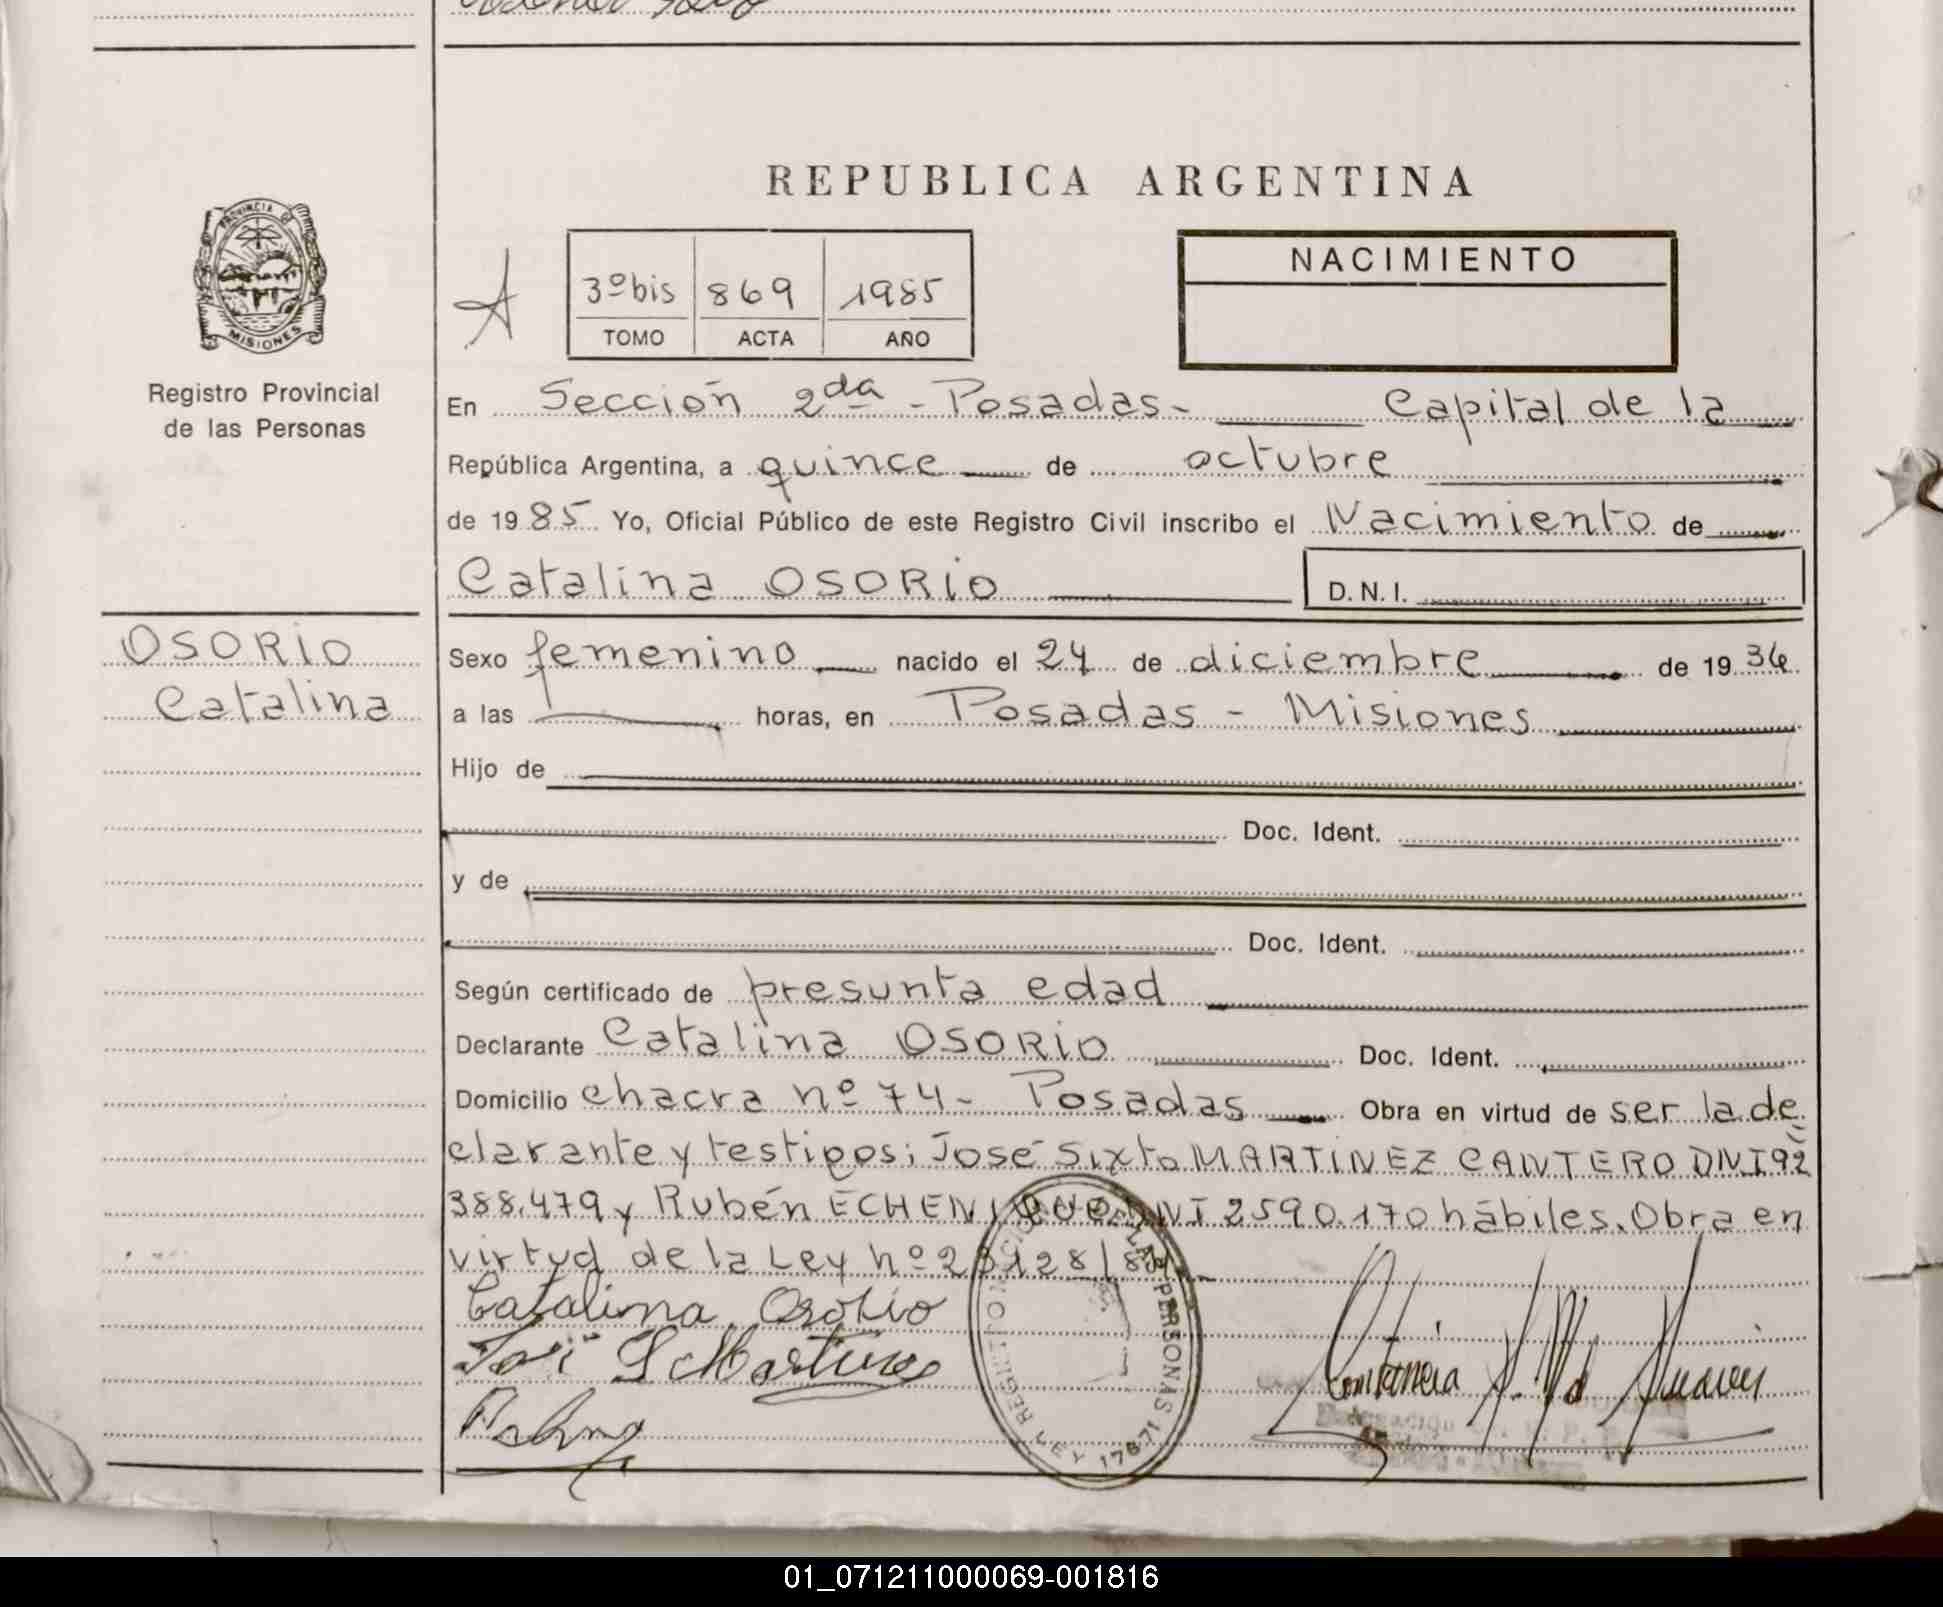 REPUBLICA ARGENTINA
PROVINCIA DE
MISIONES
Registro Provincial
de las Personas
3º bis 869 1985
TOMO ACTA AÑO
NACIMIENTO
En Sección 2da - Posadas - Capital de la
República Argentina, a quince de octubre
de 1985 Yo, Oficial Público de este Registro Civil inscribo el Nacimiento de
Catalina OSORIO D.N.I.
OSORIO
Catalina
Sexo femenino nacido el 24 de diciembre de 1936
a las horas, en Posadas - Misiones
Hijo de
Doc. Ident.
y de
Doc. Ident.
Según certificado de presunta edad
Declarante Catalina OSORIO Doc. Ident.
Domicilio chacra nº 74 - Posadas Obra en virtud de ser la de
clarante y testigos; José Sixto MARTINEZ CANTERO DNI 92
388.479 y Rubén ECHENIQUE DNI 2590.170 hábiles. Obra en
virtud de la Ley nº 23128/84
Catalina Osorio
José S Martinez
LEY 17671
DE LAS PERSONAS
01_071211000069-001816